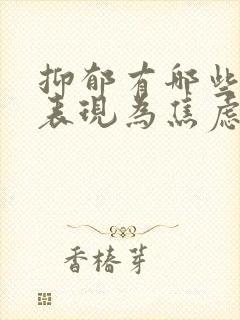 抑郁有哪些
表現為焦慮
香椿芽